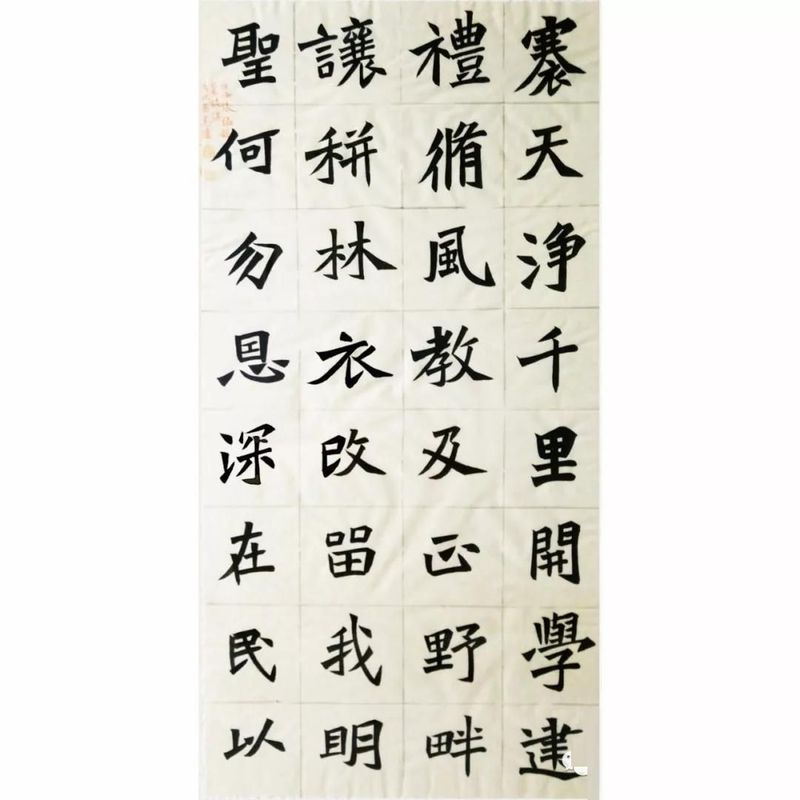 褰天浄千里開學建
禮脩風教及正野畔
讓耕林衣改留我明
聖何勿恩深在民以